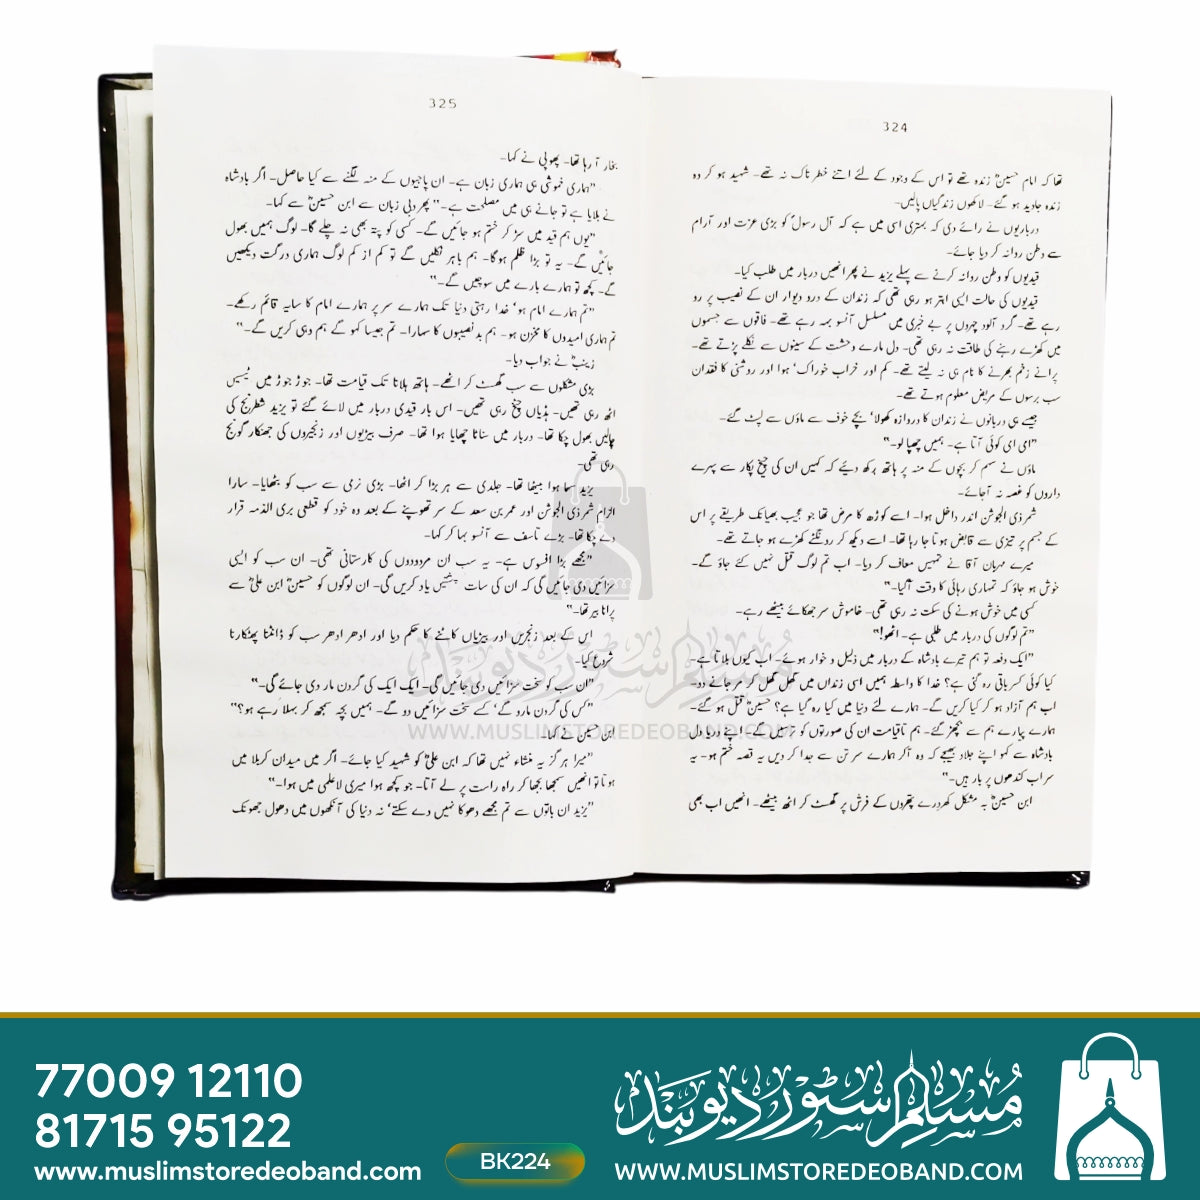 324
تھا کہ امام حسینؑ زندہ تھے تو اس کے وجود کے لئے اتنے خطرناک نہ تھے۔ شہید ہو کر وہ
زندہ جاوید ہو گئے۔ لاکھوں زندگیاں پالیں۔
درباریوں نے رائے دی کہ بہتری اسی میں ہے کہ آل رسولؐ کو بڑی عزت اور آرام
سے وطن روانہ کر دیا جائے۔
قیدیوں کو وطن روانہ کرنے سے پہلے یزید نے پھر انھیں دربار میں طلب کیا۔
قیدیوں کی حالت ایسی ابتر ہو رہی تھی کہ زندان کے در و دیوار ان کے نصیب پر رو
رہے تھے۔ گرد آلود چہروں پر بے خبری میں مسلسل آنسو بہہ رہے تھے۔ فاقوں سے جسموں
میں کھڑے رہنے کی طاقت نہ رہی تھی۔ دل مارے وحشت کے سینوں سے نکلے پڑتے تھے۔
پرانے زخم بھرنے کا نام ہی نہ لیتے تھے۔ کم اور خراب خوراک‘ ہوا اور روشنی کا فقدان
سب برسوں کے مریض معلوم ہوتے تھے۔
جیسے ہی دربانوں نے زندان کا دروازہ کھولا‘ بچے خوف سے ماؤں سے لپٹ گئے۔
”امی امی کوئی آتا ہے۔ ہمیں چھپا لو۔“
ماؤں نے سہم کر بچوں کے منہ پر ہاتھ رکھ دیئے کہ کہیں ان کی چیخ پکار سے پہرے
داروں کو غصہ نہ آجائے۔
شمر ذی الجوشن اندر داخل ہوا۔ اسے کوڑھ کا مرض تھا جو عجیب بھیانک طریقے پر اس
کے جسم پر تیزی سے قابض ہوتا جا رہا تھا۔ اسے دیکھ کر رونگٹے کھڑے ہو جاتے تھے۔
میرے مہربان آقا نے تمہیں معاف کر دیا۔ اب تم لوگ قتل نہیں کئے جاؤ گے۔
خوش ہو جاؤ کہ تمہاری رہائی کا وقت آگیا۔“
کسی میں خوش ہونے کی سکت نہ رہی تھی۔ خاموش سر جھکائے بیٹھے رہے۔
”تم لوگوں کی دربار میں طلبی ہے۔ اٹھو!“
”ایک دفعہ تو ہم تیرے بادشاہ کے دربار میں ذلیل و خوار ہوئے۔ اب کیوں بلاتا ہے۔
کیا کوئی کسر باقی رہ گئی ہے؟ خدا کا واسطہ ہمیں اسی زنداں میں گھل گھل کر مر جانے دو۔
اب ہم آزاد ہو کر کیا کریں گے۔ ہمارے لئے دنیا میں کیا رہ گیا ہے؟ حسینؑ قتل ہو گئے۔
ہمارے پیارے ہم سے بچھڑ گئے۔ ہم تاقیامت ان کی صورتوں کو ترسیں گے۔ اپنے دریا دل
بادشاہ سے کہو اپنے جلاد بھیجے کہ وہ آکر ہمارے سر تن سے جدا کر دیں یہ قصہ ختم ہو۔ یہ
سر اب کندھوں پر بار ہیں۔“
ابن حسینؑ بہ مشکل کھردرے پتھروں کے فرش پر گھسٹ کر اٹھ بیٹھے۔ انھیں اب بھی
325
بخار آ رہا تھا۔ پھوپی نے کہا۔
”ہماری خموشی ہی ہماری زبان ہے۔ ان پاجیوں کے منہ لگنے سے کیا حاصل۔ اگر بادشاہ
نے بلایا ہے تو جانے ہی میں مصلحت ہے۔“ پھر دبی زبان سے ابن حسینؑ سے کہا۔
”یوں ہم قید میں سڑ کر ختم ہو جائیں گے۔ کسی کو پتہ بھی نہ چلے گا۔ لوگ ہمیں بھول
جائیں گے۔ یہ تو بڑا ظلم ہوگا۔ ہم باہر نکلیں گے تو کم از کم لوگ ہماری درگت دیکھیں
گے۔ کچھ تو ہمارے بارے میں سوچیں گے۔“
”تم ہمارے امام ہو‘ خدا رہتی دنیا تک ہمارے سر پر ہمارے امام کا سایہ قائم رکھے۔
تم ہماری امیدوں کا مخزن ہو۔ ہم بدنصیبوں کا سہارا۔ تم جیسا کہو گے ہم وہی کریں گے۔“
زینبؑ نے جواب دیا۔
بڑی مشکلوں سے سب گھسٹ کر اٹھے۔ ہاتھ ہلانا تک قیامت تھا۔ جوڑ جوڑ میں ٹیسیں
اٹھ رہی تھیں۔ ہڈیاں چیخ رہی تھیں۔ اس بار قیدی دربار میں لائے گئے تو یزید شطرنج کی
چالیں بھول چکا تھا۔ دربار میں سناٹا چھایا ہوا تھا۔ صرف بیڑیوں اور زنجیروں کی جھنکار گونج
رہی تھی۔
یزید سہما ہوا بیٹھا تھا۔ جلدی سے ہڑبڑا کر اٹھا۔ بڑی نرمی سے سب کو بٹھایا۔ سارا
الزام شمر ذی الجوشن اور عمر بن سعد کے سر تھوپنے کے بعد وہ خود کو قطعی بری الذمہ قرار
دے چکا تھا۔ بڑے تاسف سے آنسو بہا کر کہا۔
”مجھے بڑا افسوس ہے۔ یہ سب ان مردودوں کی کارستانی تھی۔ ان سب کو ایسی
سزائیں دی جائیں گی کہ ان کی سات پشتیں یاد کریں گی۔ ان لوگوں کو حسینؑ ابن علیؑ سے
پرانا بیر تھا۔“
اس کے بعد زنجریں اور بیڑیاں کاٹنے کا حکم دیا اور ادھر ادھر سب کو ڈانٹنا پھٹکارنا
شروع کیا۔
”ان سب کو سخت سزائیں دی جائیں گی۔ ایک ایک کی گردن مار دی جائے گی۔“
”کس کی گردن مارو گے‘ کسے سخت سزائیں دو گے۔ ہمیں بچہ سمجھ کر بہلا رہے ہو؟“
ابن حسین نے کہا۔
”میرا ہر گز یہ منشاء نہیں تھا کہ ابن علیؑ کو شہید کیا جائے۔ اگر میں میدان کربلا میں
ہوتا تو انھیں سمجھا بجھا کر راہ راست پر لے آتا۔ جو کچھ ہوا میری لاعلمی میں ہوا۔“
”یزید ان باتوں سے تم مجھے دھوکا نہیں دے سکتے‘ نہ دنیا کی آنکھوں میں دھول جھونک
مسلم سٹور دیوبند
WWW.MUSLIMSTOREDEOBAND.COM
77009 12110
81715 95122
www.muslimstoredeoband.com
BK224
مسلم سٹور دیوبند
WWW.MUSLIMSTOREDEOBAND.COM